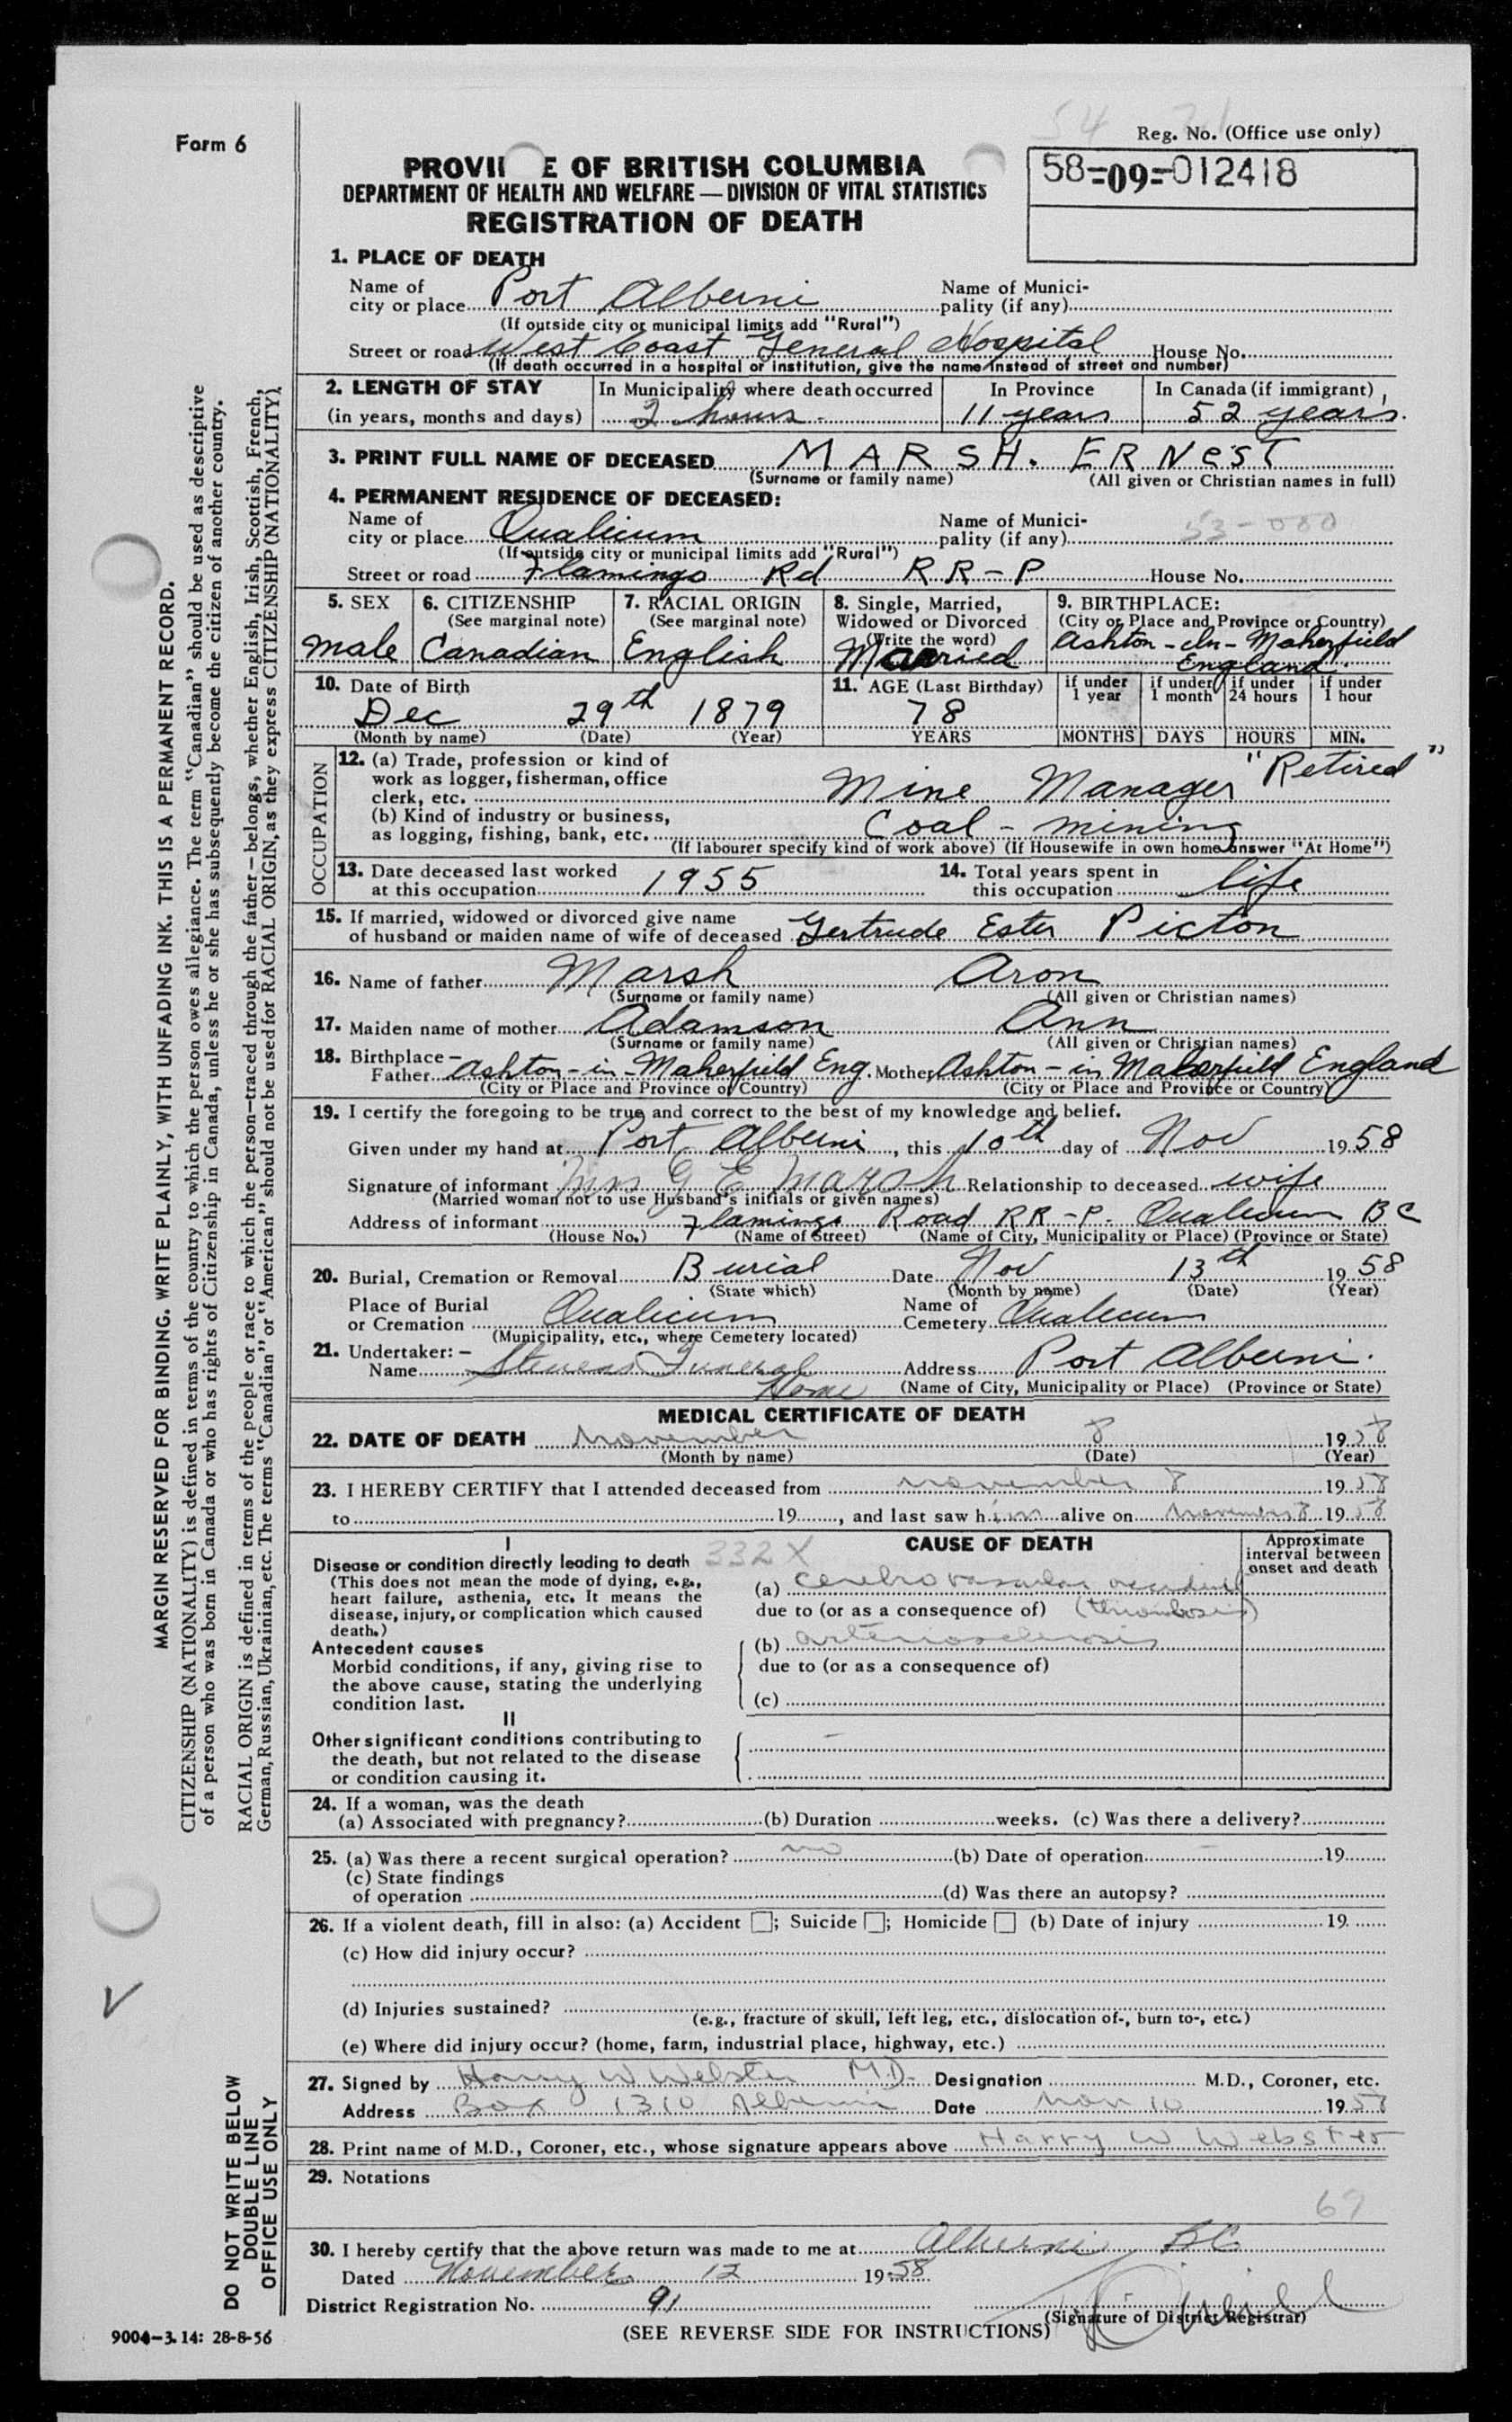 Form 6
Reg. No. (Office use only)
58-09-012418
PROVI E OF BRITISH COLUMBIA
DEPARTMENT OF HEALTH AND WELFARE — DIVISION OF VITAL STATISTICS
REGISTRATION OF DEATH
1. PLACE OF DEATH
Name of city or place Port Alberni Name of Municipality (if any)
(If outside city or municipal limits add "Rural")
Street or road West Coast General Hospital House No.
(If death occurred in a hospital or institution, give the name instead of street and number)
2. LENGTH OF STAY In Municipality where death occurred In Province In Canada (if immigrant)
(in years, months and days) 2 hours - 11 years 52 years.
3. PRINT FULL NAME OF DECEASED MARSH. ERNEST
(Surname or family name) (All given or Christian names in full)
4. PERMANENT RESIDENCE OF DECEASED:
Name of city or place Qualicum Name of Municipality (if any) 53-000
(If outside city or municipal limits add "Rural")
Street or road Flamingo Rd RR-P House No.
5. SEX 6. CITIZENSHIP 7. RACIAL ORIGIN 8. Single, Married, 9. BIRTHPLACE:
(See marginal note) (See marginal note) Widowed or Divorced (City or Place and Province or Country)
(Write the word)
male Canadian English Married Ashton-in-Makerfield
England.
10. Date of Birth 11. AGE (Last Birthday) if under 1 year if under 1 month if under 24 hours if under 1 hour
Dec 29th 1879 78
(Month by name) (Date) (Year) YEARS MONTHS DAYS HOURS MIN.
OCCUPATION
12. (a) Trade, profession or kind of
work as logger, fisherman, office
clerk, etc. Mine Manager "Retired"
(b) Kind of industry or business,
as logging, fishing, bank, etc. Coal - mining
(If labourer specify kind of work above) (If Housewife in own home answer "At Home")
13. Date deceased last worked at this occupation 1955 14. Total years spent in this occupation life
15. If married, widowed or divorced give name
of husband or maiden name of wife of deceased Gertrude Ester Picton
16. Name of father Marsh Aron
(Surname or family name) (All given or Christian names)
17. Maiden name of mother Adamson Ann
(Surname or family name) (All given or Christian names)
18. Birthplace—
Father Ashton-in-Makerfield Eng. Mother Ashton-in Makerfield England
(City or Place and Province or Country) (City or Place and Province or Country)
19. I certify the foregoing to be true and correct to the best of my knowledge and belief.
Given under my hand at Port Alberni, this 10th day of Nov 1958
Signature of informant Mrs G E Marsh Relationship to deceased wife
(Married woman not to use Husband's initials or given names)
Address of informant Flamingo Road RR-P. Qualicum BC
(House No.) (Name of Street) (Name of City, Municipality or Place) (Province or State)
20. Burial, Cremation or Removal Burial Date Nov 13th 1958
(State which) (Month by name) (Date) (Year)
Place of Burial or Cremation Qualicum Name of Cemetery Qualicum
(Municipality, etc., where Cemetery located)
21. Undertaker: —
Name Stevens Funeral Home Address Port Alberni.
(Name of City, Municipality or Place) (Province or State)
MEDICAL CERTIFICATE OF DEATH
22. DATE OF DEATH November 8 1958
(Month by name) (Date) (Year)
23. I HEREBY CERTIFY that I attended deceased from November 8 1958
to 19, and last saw him alive on November 8 1958
I CAUSE OF DEATH Approximate interval between onset and death
Disease or condition directly leading to death 332X
(This does not mean the mode of dying, e.g.,
heart failure, asthenia, etc. It means the
disease, injury, or complication which caused
death.)
(a) cerebrovascular accident
due to (or as a consequence of) (thrombosis)
Antecedent causes
Morbid conditions, if any, giving rise to
the above cause, stating the underlying
condition last.
(b) arteriosclerosis
due to (or as a consequence of)
(c)
II
Other significant conditions contributing to
the death, but not related to the disease
or condition causing it.
-
24. If a woman, was the death
(a) Associated with pregnancy? (b) Duration weeks. (c) Was there a delivery?
25. (a) Was there a recent surgical operation? no (b) Date of operation - 19
(c) State findings
of operation (d) Was there an autopsy?
26. If a violent death, fill in also: (a) Accident ☐; Suicide ☐; Homicide ☐ (b) Date of injury 19
(c) How did injury occur?
(d) Injuries sustained?
(e.g., fracture of skull, left leg, etc., dislocation of-, burn to-, etc.)
(e) Where did injury occur? (home, farm, industrial place, highway, etc.)
27. Signed by Harry W Webster M.D. Designation M.D., Coroner, etc.
Address Box 1310 Alberni Date Nov 10 1958
28. Print name of M.D., Coroner, etc., whose signature appears above Harry W Webster
29. Notations
30. I hereby certify that the above return was made to me at Alberni BC
Dated November 12 1958
District Registration No. 91
(Signature of District Registrar)
(SEE REVERSE SIDE FOR INSTRUCTIONS)
9004—3.14: 28-8-56
MARGIN RESERVED FOR BINDING. WRITE PLAINLY, WITH UNFADING INK. THIS IS A PERMANENT RECORD.
CITIZENSHIP (NATIONALITY) is defined in terms of the country to which the person owes allegiance. The term "Canadian" should be used as descriptive
of a person who was born in Canada or who has rights of Citizenship in Canada, unless he or she has subsequently become the citizen of another country.
RACIAL ORIGIN is defined in terms of the people or race to which the person—traced through the father—belongs, whether English, Irish, Scottish, French,
German, Russian, Ukrainian, etc. The terms "Canadian" or "American" should not be used for RACIAL ORIGIN, as they express CITIZENSHIP (NATIONALITY).
DO NOT WRITE BELOW
DOUBLE LINE
OFFICE USE ONLY